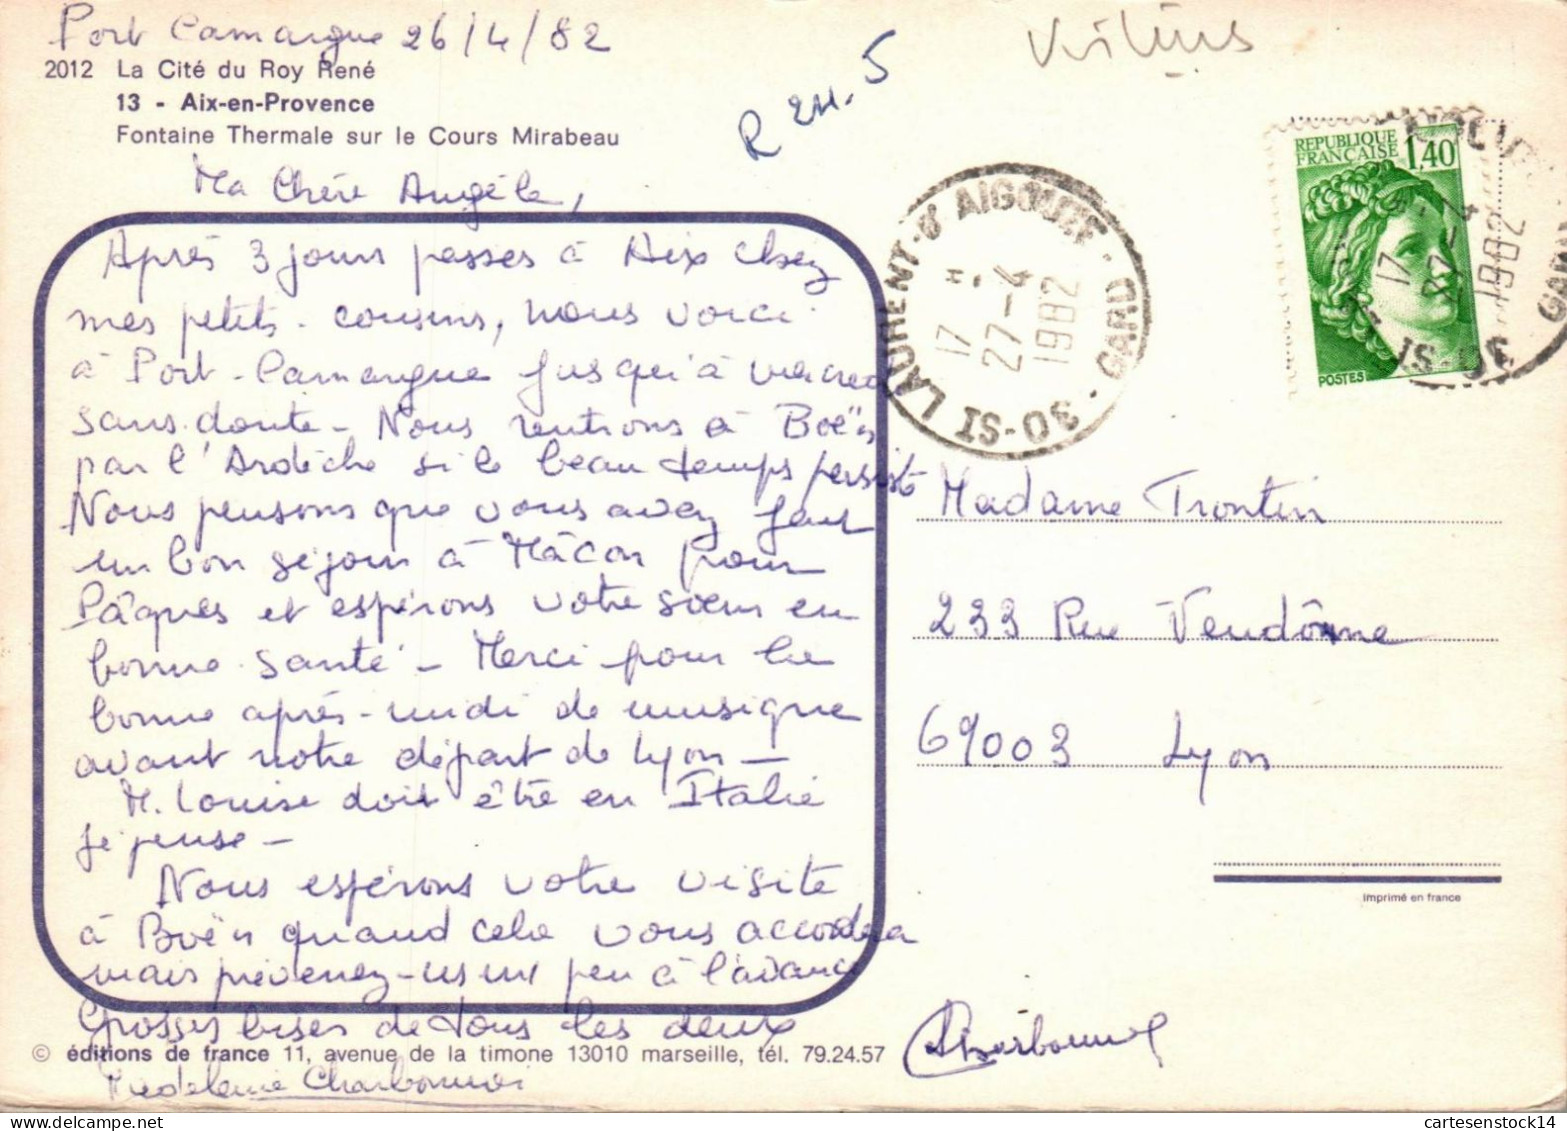 Port Camargue 26/4/82
2012 La Cité du Roy René
13 - Aix-en-Provence
Fontaine Thermale sur le Cours Mirabeau
R 24.5
Ma Chère Angèle,
Après 3 jours passés à Aix chez
mes petits-cousins, nous voici
à Port-Camargue jusqu'à mercredi
sans doute - Nous rentrons à Boën
par l'Ardèche si le beau temps persiste
Nous pensons que vous avez fait
un bon séjour à Mâcon pour
Pâques et espérons votre soeur en
bonne santé - Merci pour la
bonne après-midi de musique
avant notre départ de Lyon -
M. Louise doit être en Italie
je pense -
Nous espérons votre visite
à Boën quand cela vous accordera
mais prévenez-ns un peu à l'avance
Grosses bises de tous les deux
Madeleine Charbonnier
Charbonnier
© éditions de france 11, avenue de la timone 13010 marseille, tél. 79.24.57
30-ST LAURENT-D'AIGOUZE - GARD
17 H
27-4
1982
REPUBLIQUE
FRANÇAISE
1,40
POSTES
17
27-4
1982
30-ST
GARD
Madame Trontin
233 Rue Vendôme
69003 Lyon
Imprimé en france
cartesenstock14